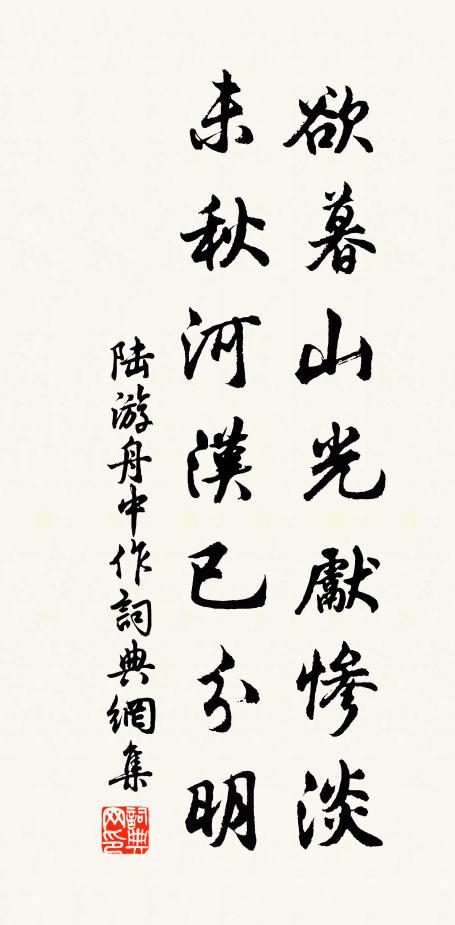 欲暮山光獻慘淡
未秋河漢已分明
陆游舟中作詞典網集
詞典網印